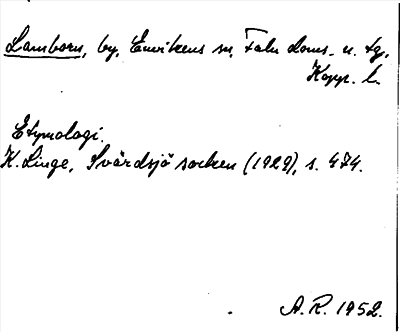 Lamborn, by, Envikens sn, Falu doms. u. tg,
Kopp. l.
Etymologi.
K. Linge, Svärdsjö socken (1929), s. 474.
A.R. 1952.